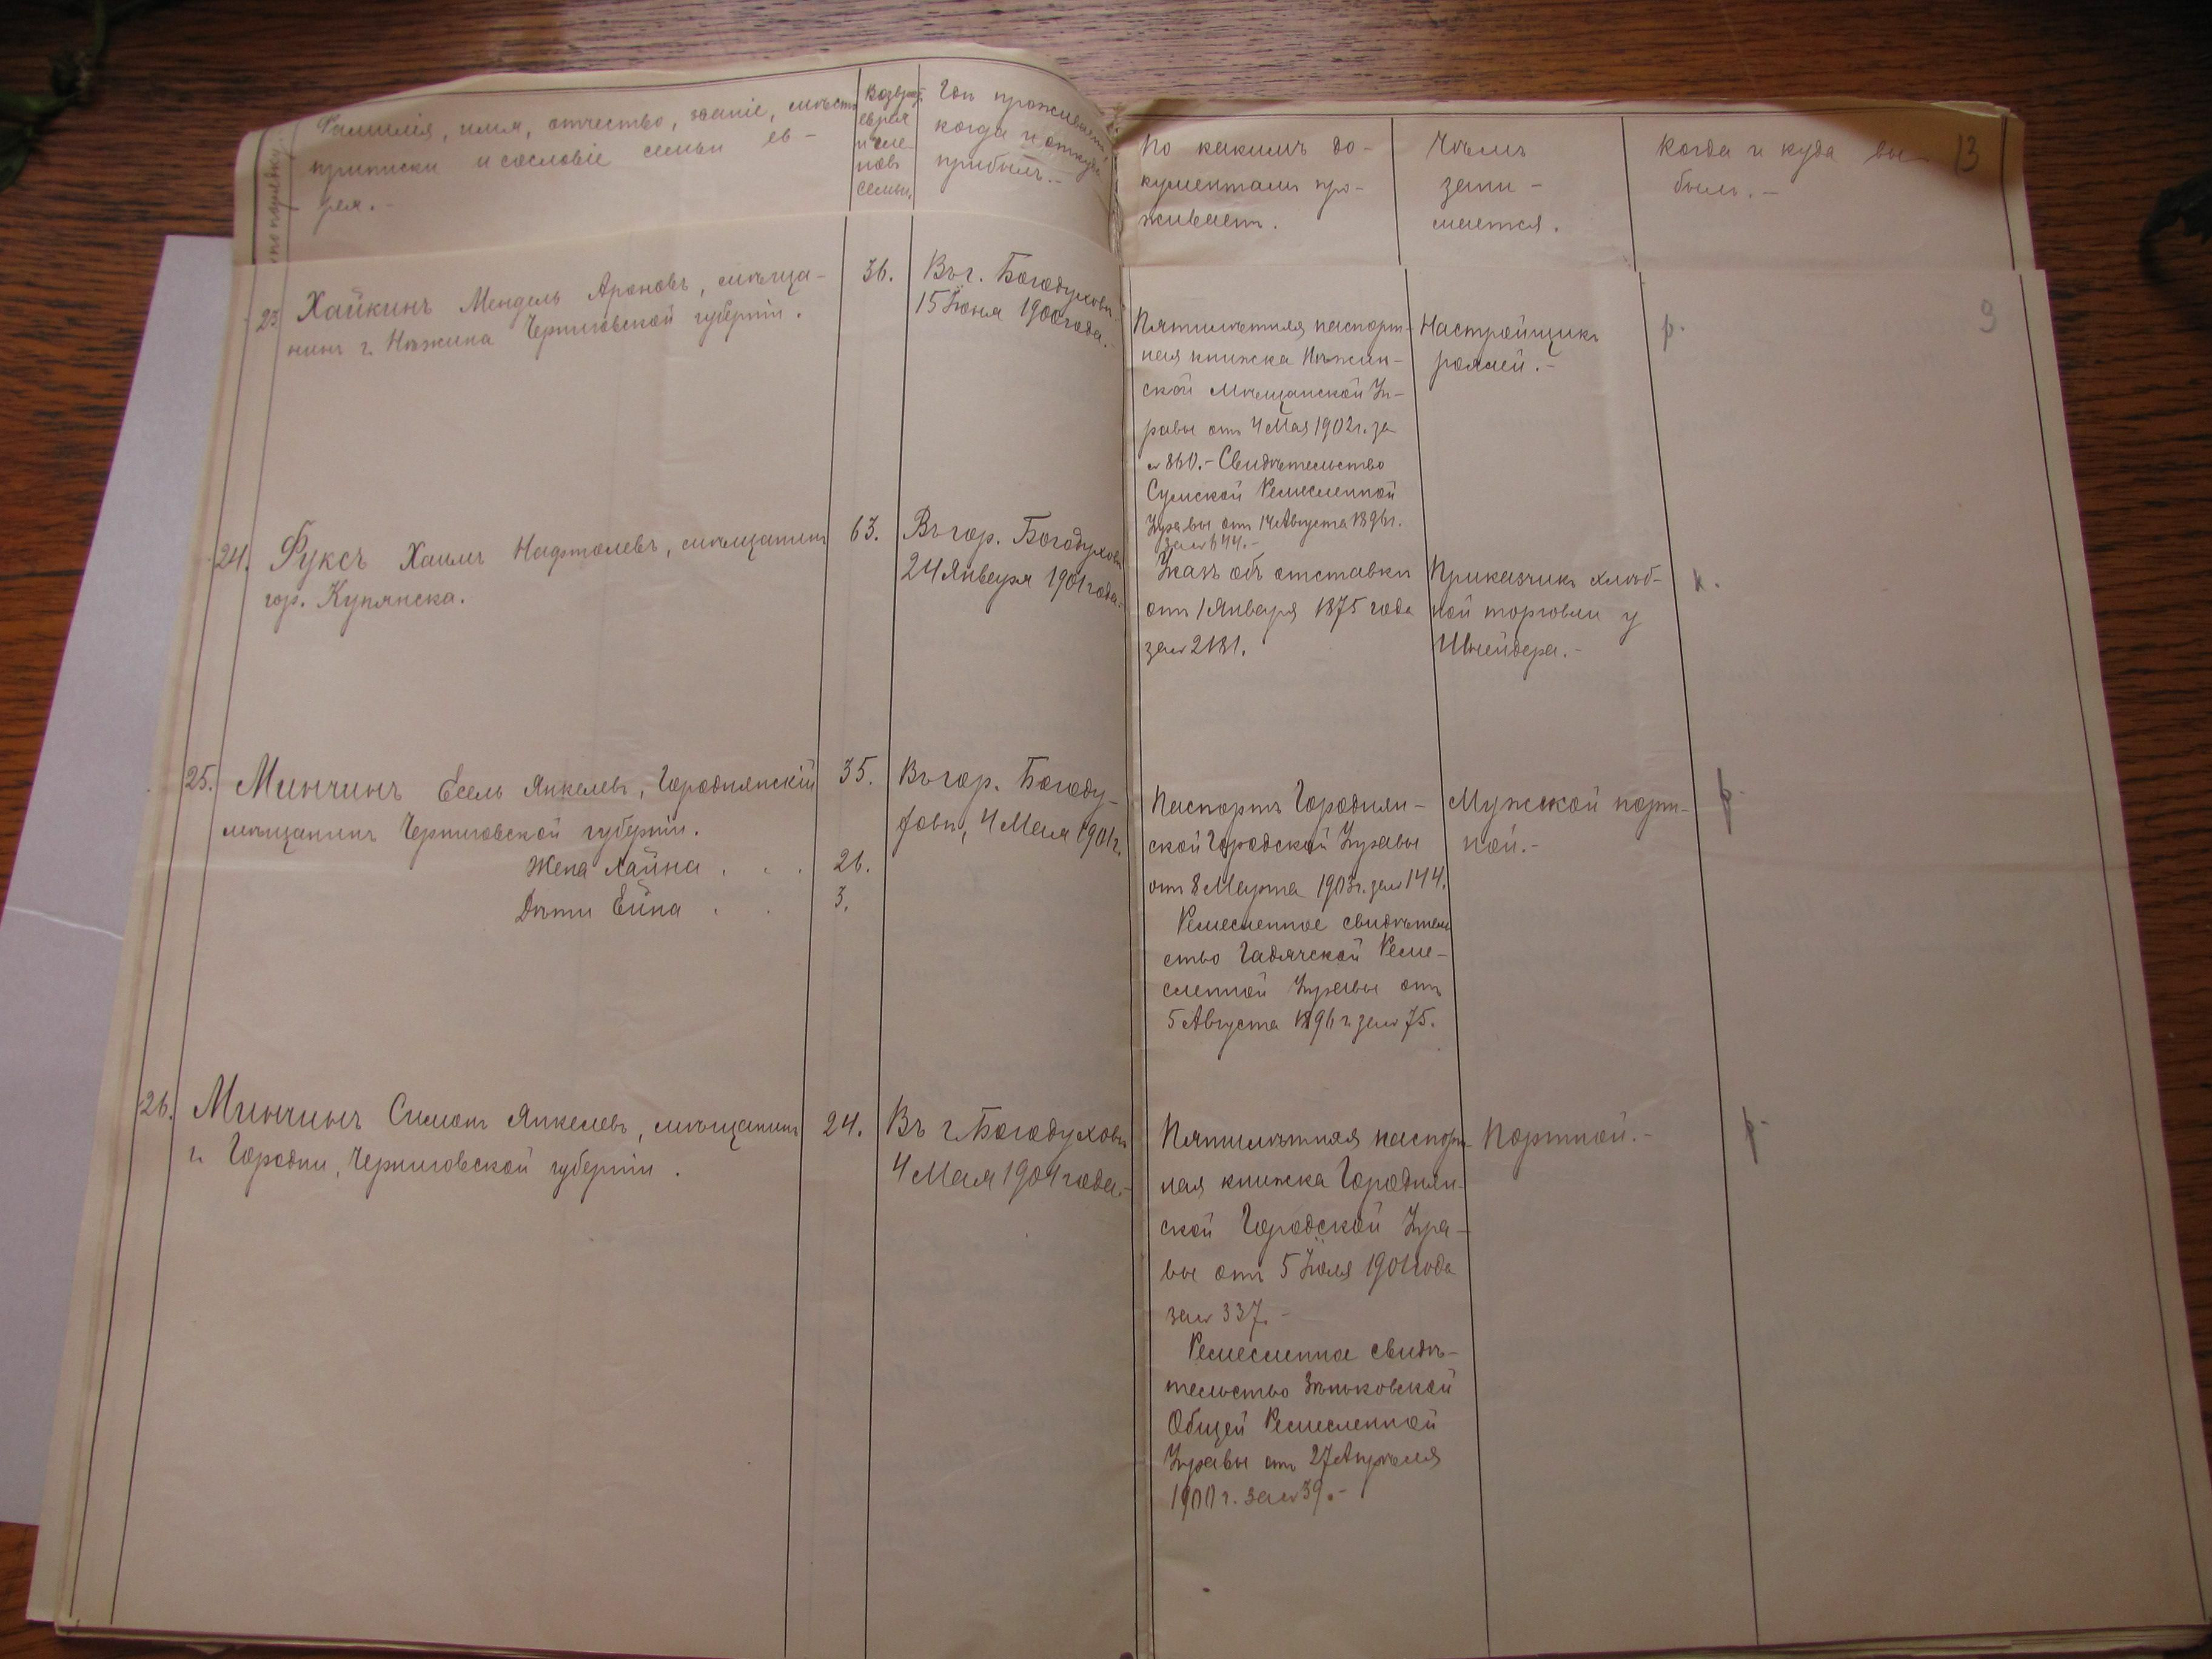 № по порядку.
Фамилія, имя, отчество, званіе, мѣсто
приписки и сословіе семьи ев-
рея.-
Возраст.
еврея
и чле
новъ
семьи.
Гдѣ проживаетъ,
когда и откуда
прибылъ.-
По какимъ до-
кументамъ про-
живаетъ.
Чѣмъ
зани-
мается.
Когда и куда вы
былъ.-
13
9
23. Хайкинъ Мендель Ароновъ, мѣща-
нинъ г. Нѣжина Черниговской губерніи.
36.
Въ г. Богодуховѣ
15 Іюня 1900 года.-
Пятилѣтняя паспорт-
ная книжка Нѣжин-
ской Мѣщанской Уп-
равы отъ 4 Мая 1902 г. за
№ 860.- Свидѣтельство
Сумской Ремесленной
Управы отъ 14 Августа 1896 г.
за № 644.-
Настройщикъ
роялей.-
р.
24. Фуксъ Хаимъ Нафтолевъ, мѣщанинъ
гор. Купянска.
63.
Въ гор. Богодуховѣ
24 Января 1901 года.
Указъ объ отставкѣ
отъ 1 Января 1875 года
за № 2181.
Приказчикъ хлѣб-
ной торговли у
Шнейдера.-
н.
25. Минчинъ Есель Янкелевъ, Городнянскій
мѣщанинъ Черниговской губерніи.
Жена Хайна . . .
Дѣти Ейна . .
35.
26.
3.
Въ гор. Богоду-
ховѣ, 4 Мая 1901 г.
Паспортъ Городнян-
ской Городской Управы
отъ 8 Марта 1903 г. за № 144.
Ремесленное свидѣтель
ство Гадячской Реме-
сленной Управы отъ
5 Августа 1896 г. за № 75.
Мужской порт-
ной.-
р.
26. Минчинъ Симонъ Янкелевъ, мѣщанинъ
г. Городни, Черниговской губерніи.
24.
Въ г Богодуховѣ
4 Мая 1901 года.-
Пятилѣтняя паспорт-
ная книжка Городнян-
ской Городской Упра-
вы отъ 5 Іюля 1901 года
за № 337.-
Ремесленное свидѣ-
тельство Зѣньковской
Общей Ремесленной
Управы отъ 27 Апрѣля
1900 г. за № 39.-
Портной.-
р.